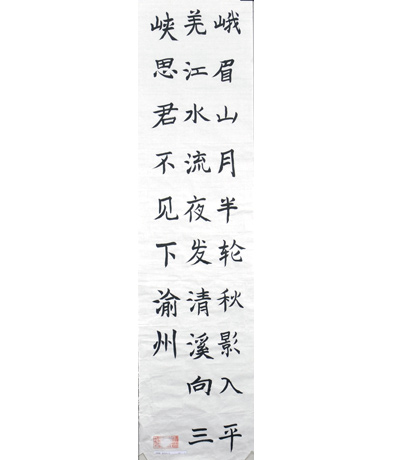 峨眉山月半轮秋影入平
羌江水流夜发清溪向三
峡思君不见下渝州